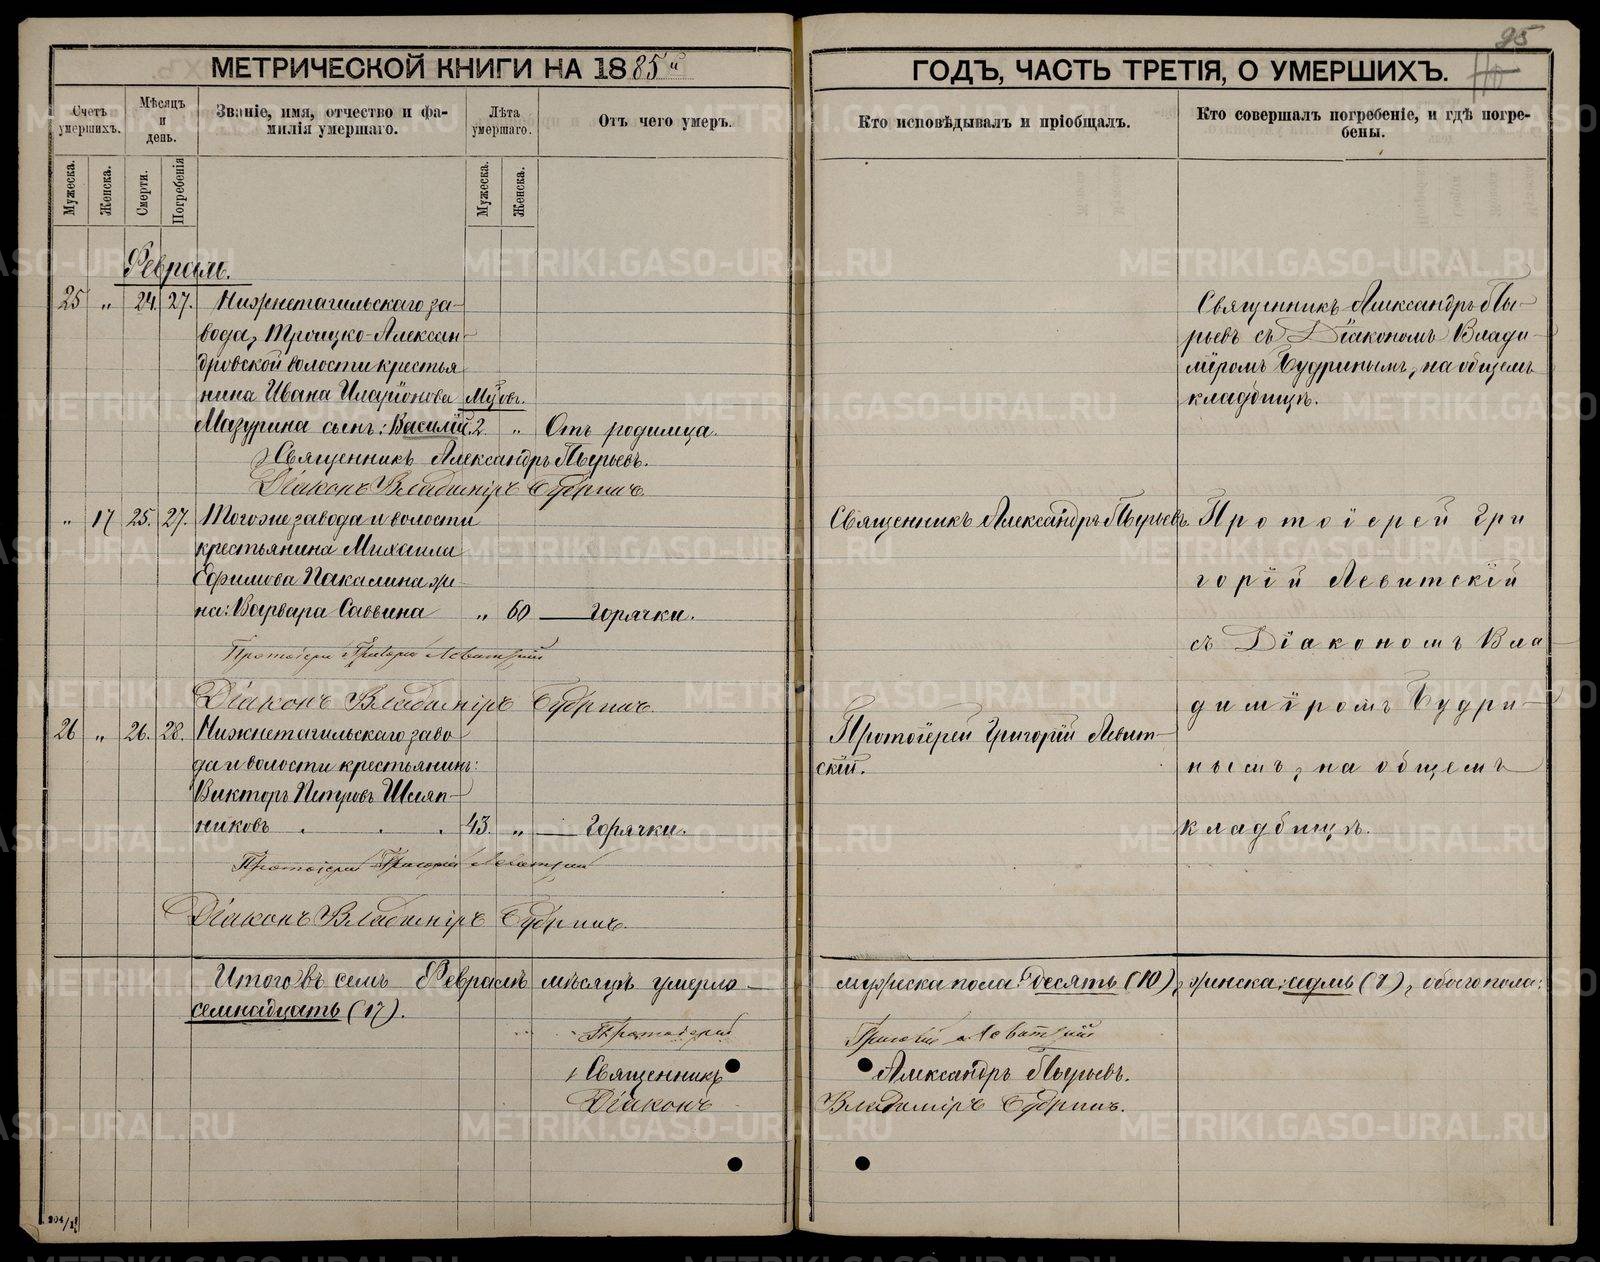 95
МЕТРИЧЕСКОЙ КНИГИ НА 1885й
ГОДЪ, ЧАСТЬ ТРЕТІЯ, О УМЕРШИХЪ.
Счетъ умершихъ.
Мѣсяцъ и день.
Званіе, имя, отчество и фа-
милія умершаго.
Лѣта умершаго.
Отъ чего умеръ.
Кто исповѣдывалъ и пріобщалъ.
Кто совершалъ погребеніе, и гдѣ погре-
бены.
Мужеска.
Женска.
Смерти.
Погребенія
Мужеска.
Женска.
Февраль.
25 „ 24. 27. Нижнетагильскаго за-
вода, Троицко-Алексан-
дровской волости крестья
нина Ивана Иларіонова
Мазурина сынъ: Василій. 2. „ Отъ родимца.
Священникъ Александръ Пырьевъ.
Діаконъ Владиміръ Будринъ.
Священникъ Александръ Пы-
рьевъ съ Діакономъ Влади-
міромъ Будринымъ, на общемъ
кладбищѣ.
„ 17 25. 27. Тогоже завода и волости
крестьянина Михаила
Ефимова Пакалина же-
на: Варвара Саввина „ 60 — горячки.
Протоіерей Григорій Левитскій
Діаконъ Владиміръ Будринъ.
Священникъ Александръ Пырьевъ.
Протоіерей Гри
горій Левитскій
съ Діакономъ Вла
диміромъ Будри-
нымъ, на общемъ
кладбищѣ.
26 „ 26. 28. Нижнетагильскаго заво
да и волости крестьянинъ:
Викторъ Петровъ Шляп-
никовъ . . . 43. „ — Горячки.
Протоіерей Григорій Левитскій
Діаконъ Владиміръ Будринъ.
Протоіерей Григорій Левит-
скій.
Итого въ семъ Февралѣ мѣсяцѣ умерло мужеска пола: десять (10), женска: седмь (7), обоего пола:
семнадцать (17).
Протоіерей Григорій Левитскій
Священникъ Александръ Пырьевъ.
Діаконъ Владиміръ Будринъ.
METRIKI.GASO-URAL.RU